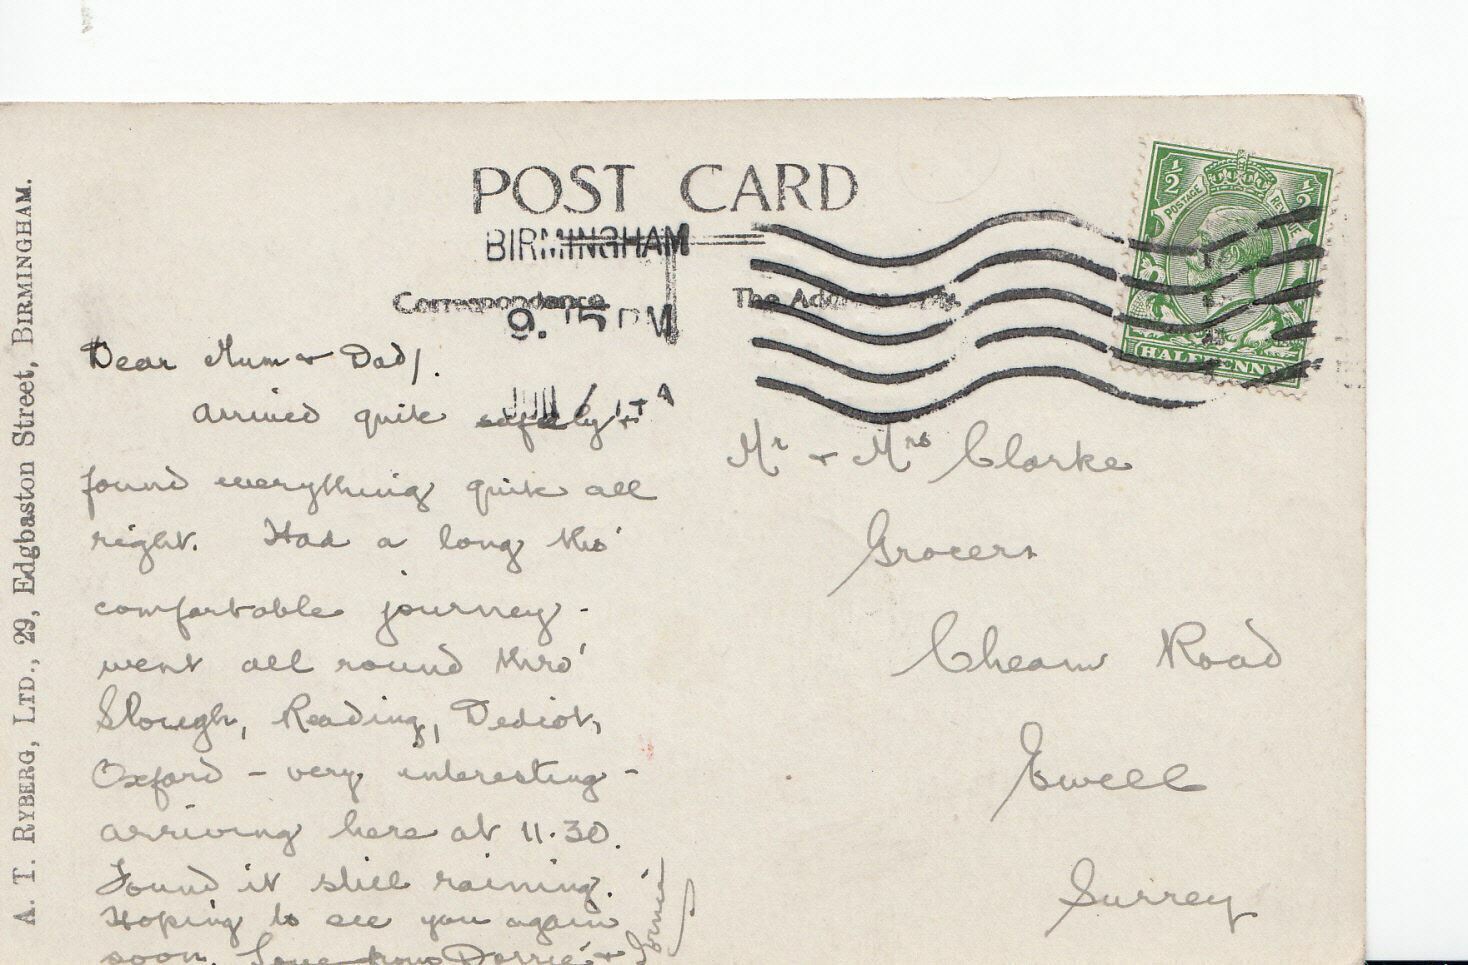 POST CARD
BIRMINGHAM
Correspondence
The Address Only.
9. 15 PM
A. T. RYBERG, LTD., 29, Edgbaston Street, BIRMINGHAM.
½ ½
POSTAGE REVENUE
HALFPENNY
Dear Mum + Dad,
arrived quite safely +
found everything quite all
right. Had a long tho'
comfortable journey -
went all round thro'
Slough, Reading, Dediot,
Oxford - very interesting -
arriving here at 11.30.
Found it still raining.
Hoping to see you again
soon. Love from Dorrie +
Mr + Mrs Clarke
Grocers
Cheam Road
Ewell
Surrey